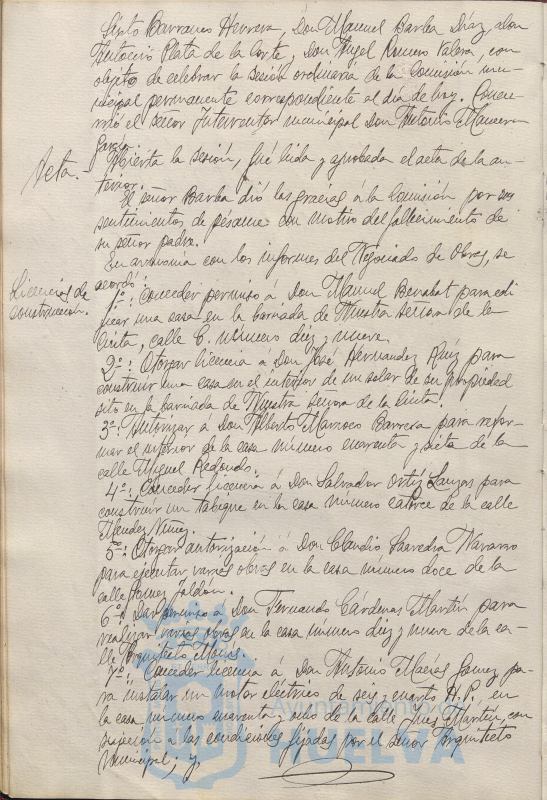 Sixto Barranco Herrera, Don Manuel Barba Díaz, don
Antonio Plata de la Corte, Don Ángel Romero Valera, con
objeto de celebrar la sesión ordinaria de la Comisión mu-
nicipal permanente correspondiente al día de hoy. Concu-
rrió el señor Interventor municipal Don Antonio
García.
Acta.- Abierta la sesión, fué leída y aprobada el acta de la an-
terior.
El señor Barba dió las gracias á la Comisión por sus
sentimientos de pésame con motivo del fallecimiento de
su señor padre.
Licencias de
construcción.
En armonía con los informes del Negociado de Obras, se
acordó:
1º: Conceder permiso á Don Manuel Benabat para edi-
ficar una casa en la barriada de Nuestra Señora de la
Cinta, calle C. número diez y nueve.
2º: Otorgar licencia á Don José Hernández Ruíz para
construir una casa en el interior de un solar de su propiedad
sito en la barriada de Nuestra Señora de la Cinta.
3º: Autorizar á Don Alberto Marroco Barrera para refor-
mar el interior de la casa número cuarenta y siete de la
calle Miguel Redondo.
4º: Conceder licencia á Don Salvador Ortiz para
construir un tabique en la casa número catorce de la calle
Méndez Núñez.
5º: Otorgar autorización á Don Claudio Saavedra Navarro
para ejecutar varias obras en la casa número doce de la
calle Gómez Jaldón.
6º: Dar permiso á Don Fernando Cárdenas Martín para
realizar varias obras en la casa número diez y nueve de la ca-
lle Arquitecto
7º: Conceder licencia á Don Antonio Macías Gómez pa-
ra instalar un motor eléctrico de seis y cuarto H.P. en
la casa número cuarenta y ocho de la calle Ginés Martín, con
sujeción a las condiciones fijadas por el señor Arquitecto
municipal; y,
Ayuntamiento de
HUELVA